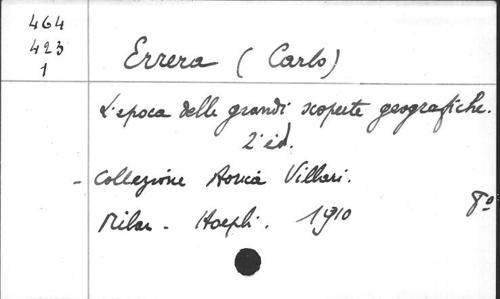 464
423
1
Errera (Carlo)
L'epoca delle grandi scoperte geografiche.
2' éd.
- Collezione Villari.
Milan - Hoepli. 1910
8°